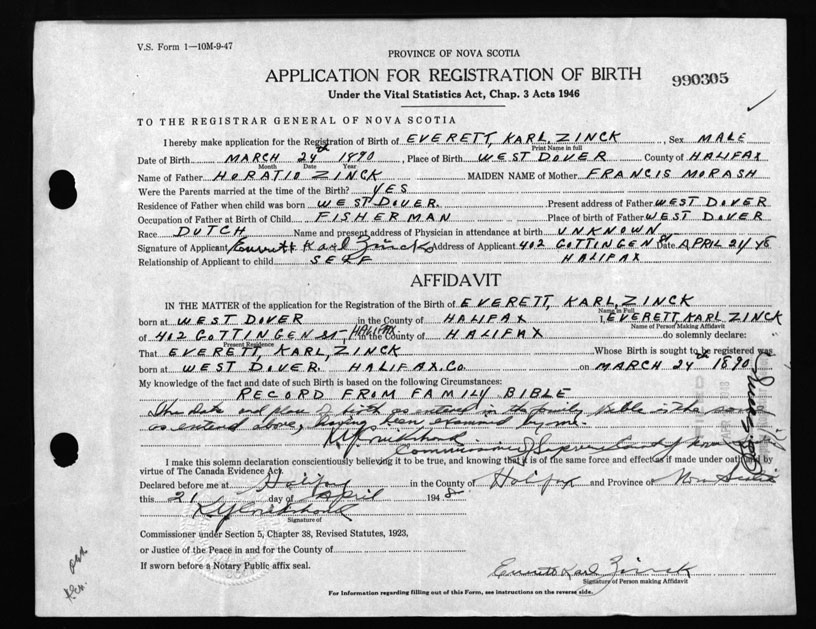 V.S. Form 1—10M-9-47
PROVINCE OF NOVA SCOTIA
APPLICATION FOR REGISTRATION OF BIRTH
990305
Under the Vital Statistics Act, Chap. 3 Acts 1946
TO THE REGISTRAR GENERAL OF NOVA SCOTIA
I hereby make application for the Registration of Birth of EVERETT, KARL, ZINCK, Sex MALE
Print Name in full
Date of Birth MARCH 24 1890, Place of Birth WEST DOVER County of HALIFAX
Month Date Year
Name of Father HORATIO ZINCK MAIDEN NAME of Mother FRANCIS MORASH
Were the Parents married at the time of the Birth? YES
Residence of Father when child was born WEST DOVER. Present address of Father WEST DOVER
Occupation of Father at Birth of Child FISHERMAN Place of birth of Father WEST DOVER
Race DUTCH Name and present address of Physician in attendance at birth UNKNOWN
Signature of Applicant Everett Karl Zinck Address of Applicant 402 GOTTINGEN ST Date APRIL 21/48
Relationship of Applicant to child SELF HALIFAX
AFFIDAVIT
IN THE MATTER of the application for the Registration of the Birth of EVERETT, KARL, ZINCK
Name in Full
born at WEST DOVER in the County of HALIFAX I, EVERETT KARL ZINCK
Name of Person Making Affidavit
of 402 GOTTINGEN ST, HALIFAX in the County of HALIFAX do solemnly declare:
Present Residence
That EVERETT, KARL, ZINCK Whose Birth is sought to be registered was
born at WEST DOVER HALIFAX Co. on MARCH 24 1890
My knowledge of the fact and date of such Birth is based on the following Circumstances:
RECORD FROM FAMILY BIBLE
The date and place of birth as entered in the family bible is the same
as entered above, having been examined by me.
Commissioner Supreme Court of Nova Scotia
I make this solemn declaration conscientiously believing it to be true, and knowing that it is of the same force and effect as if made under oath by
virtue of The Canada Evidence Act.
Declared before me at Halifax in the County of Halifax and Province of Nova Scotia
this 21 day of April 1948
Signature of
Commissioner under Section 5, Chapter 38, Revised Statutes, 1923,
or Justice of the Peace in and for the County of
If sworn before a Notary Public affix seal.
Everett Karl Zinck
Signature of Person making Affidavit
For Information regarding filling out of this Form, see instructions on the reverse side.